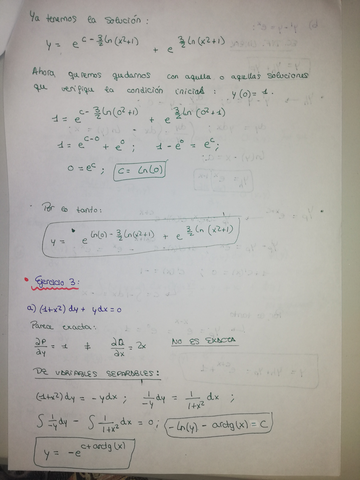 Ya tenemos la solución:
y = e^{c - 3/2 ln(x²+1)} + e^{3/2 ln(x²+1)}
Ahora, queremos quedarnos con aquella o aquellas soluciones
que verifique la condición inicial: y(0) = 1.
1 = e^{c - 3/2 ln(0²+1)} + e^{3/2 ln(0²+1)}
1 = e^{c-0} + e^0 ; 1 - e^0 = e^c ;
0 = e^c ; c = ln(0)
Por lo tanto:
y = e^{ln(0) - 3/2 ln(x²+1)} + e^{3/2 ln(x²+1)}
Ejercicio 3:
a) (1+x²) dy + y dx = 0
Parece exacta:
∂P/∂y = 1 ≠ ∂Q/∂x = 2x NO ES EXACTA
DE VARIABLES SEPARABLES:
(1+x²) dy = -y dx ; 1/-y dy = 1/1+x² dx ;
∫ 1/-y dy - ∫ 1/1+x² dx = 0 ; -ln(y) - arctg(x) = C
y = -e^{c+arctg(x)}